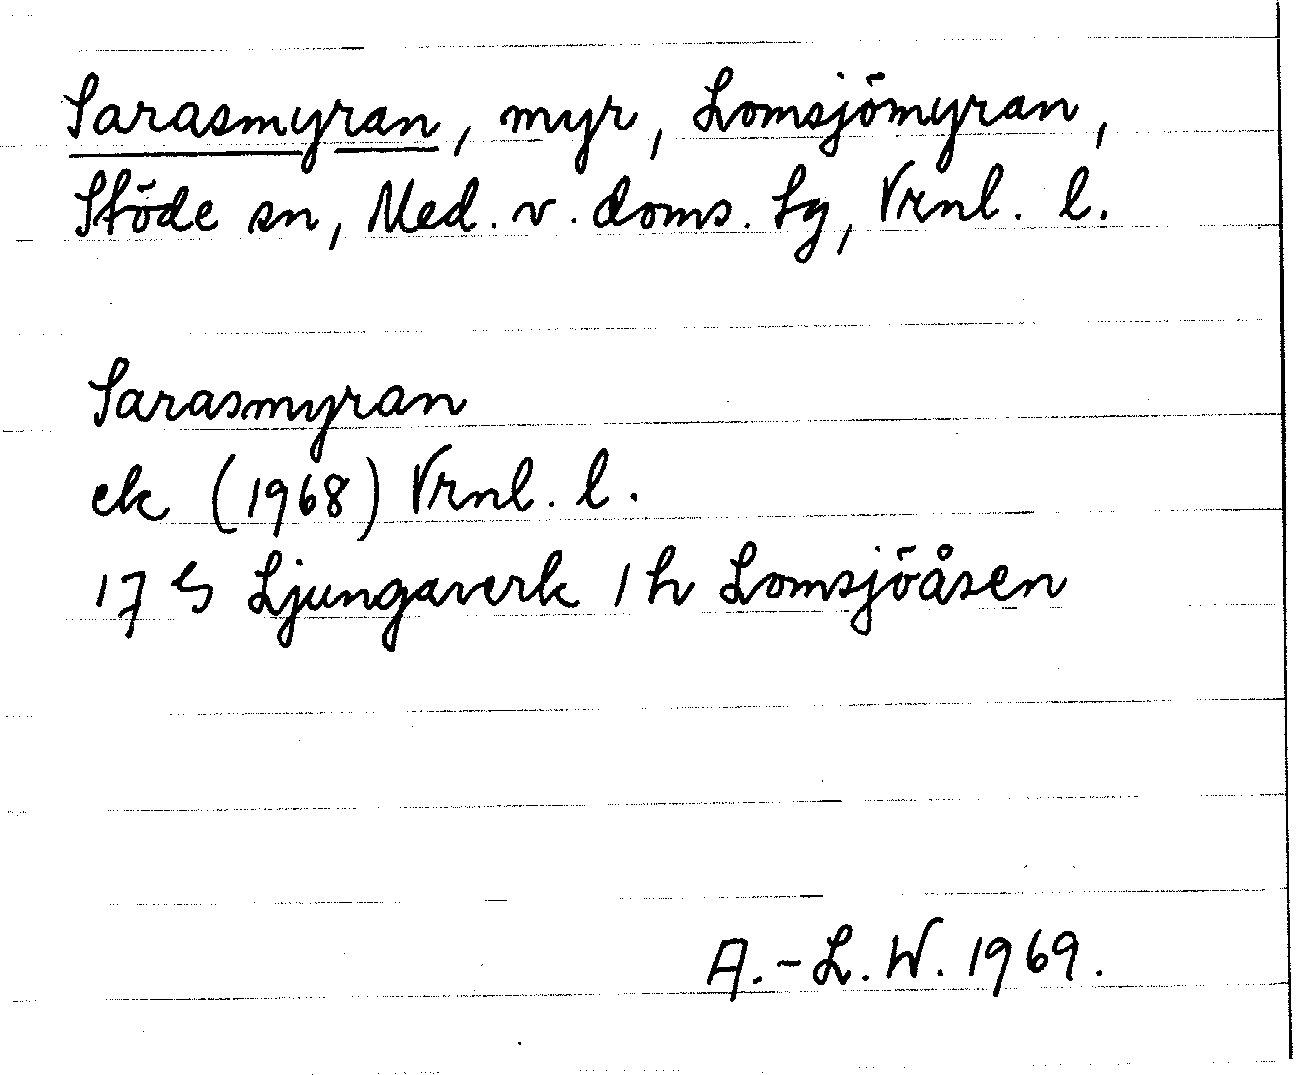 Sarasmyran, myr, Lomsjömyran,
Stöde sn, Med. v. doms. tg, Vrnl. l.
Sarasmyran
ek (1968) Vrnl. l.
17 G Ljungaverk 1 h Lomsjöåsen
A.-L. W. 1969.